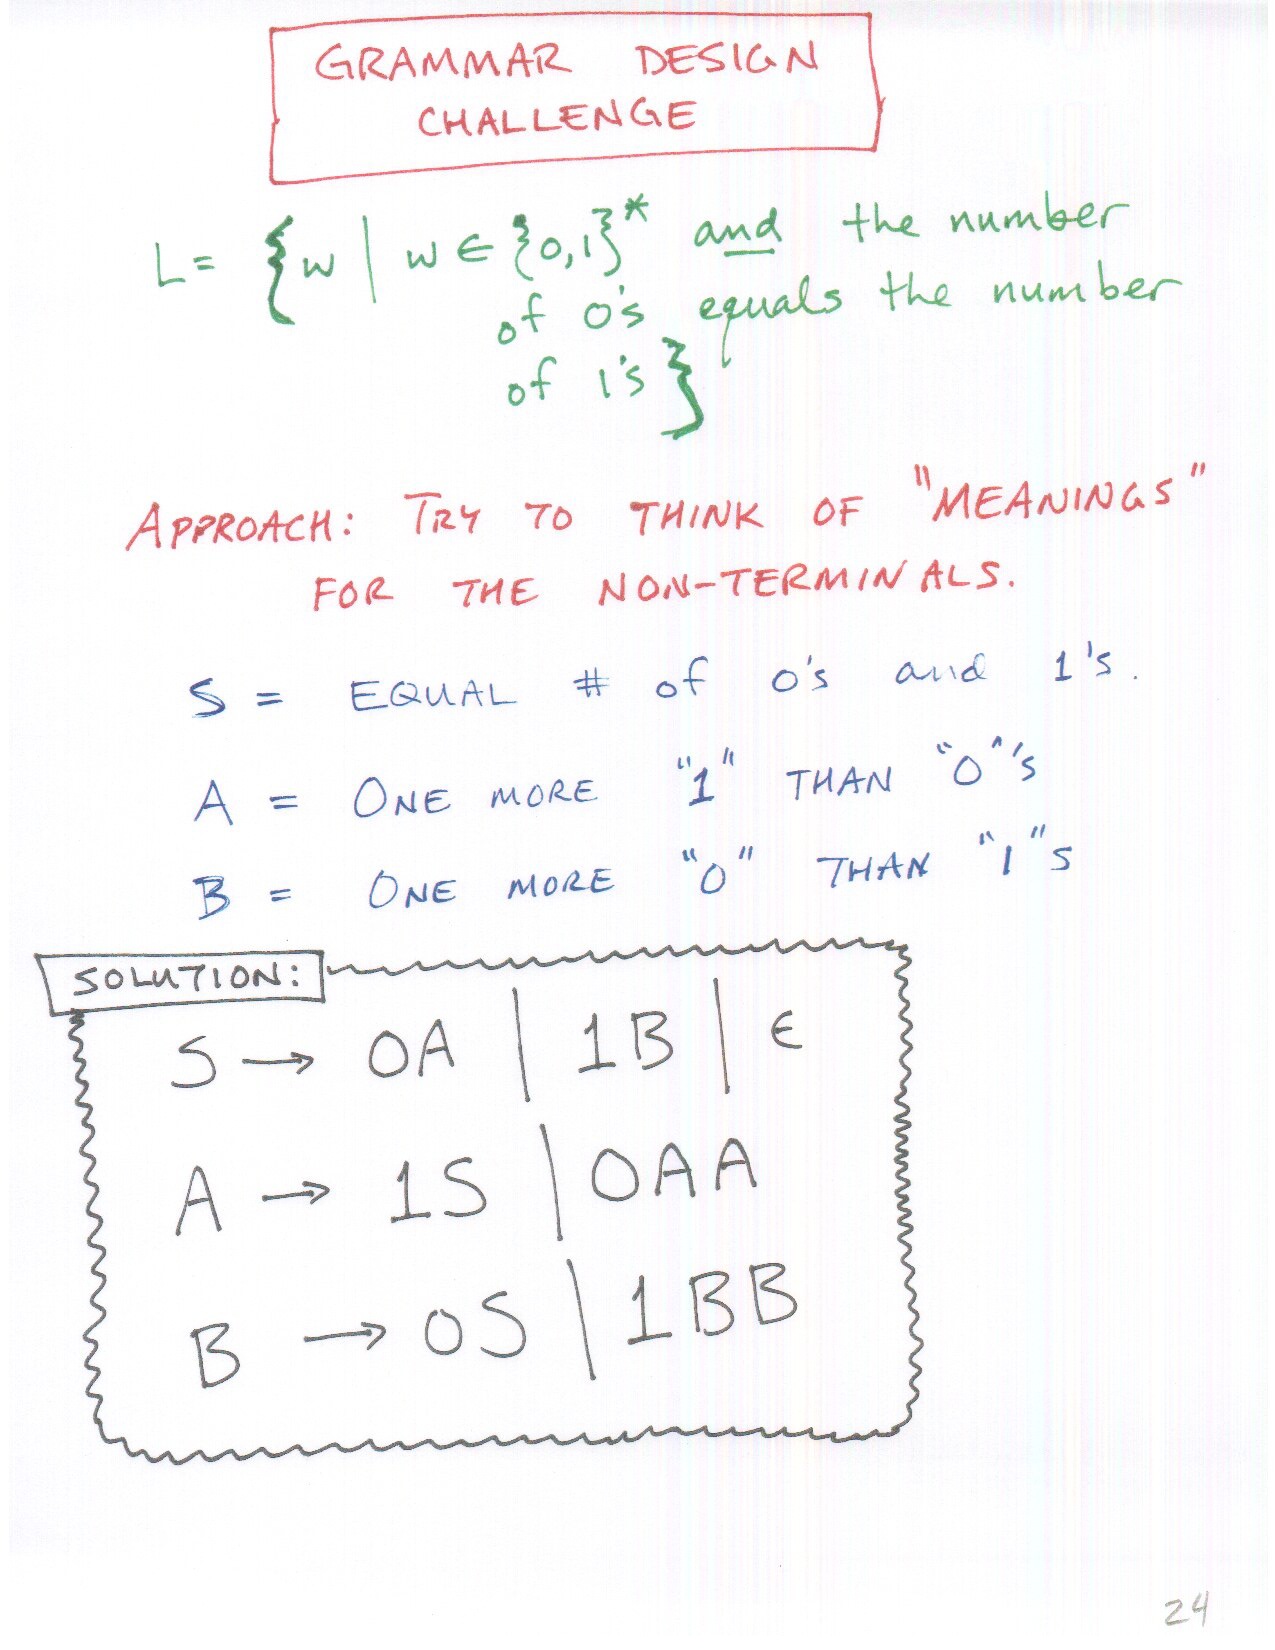 GRAMMAR DESIGN
CHALLENGE
L= {w | w ∈ {0,1}* and the number
of 0's equals the number
of 1's}
APPROACH: TRY TO THINK OF "MEANINGS"
FOR THE NON-TERMINALS.
S = EQUAL # of 0's and 1's.
A = ONE MORE "1" THAN "0"'s
B = ONE MORE "0" THAN "1"s
SOLUTION:
S → 0A | 1B | ϵ
A → 1S | 0AA
B → 0S | 1BB
24